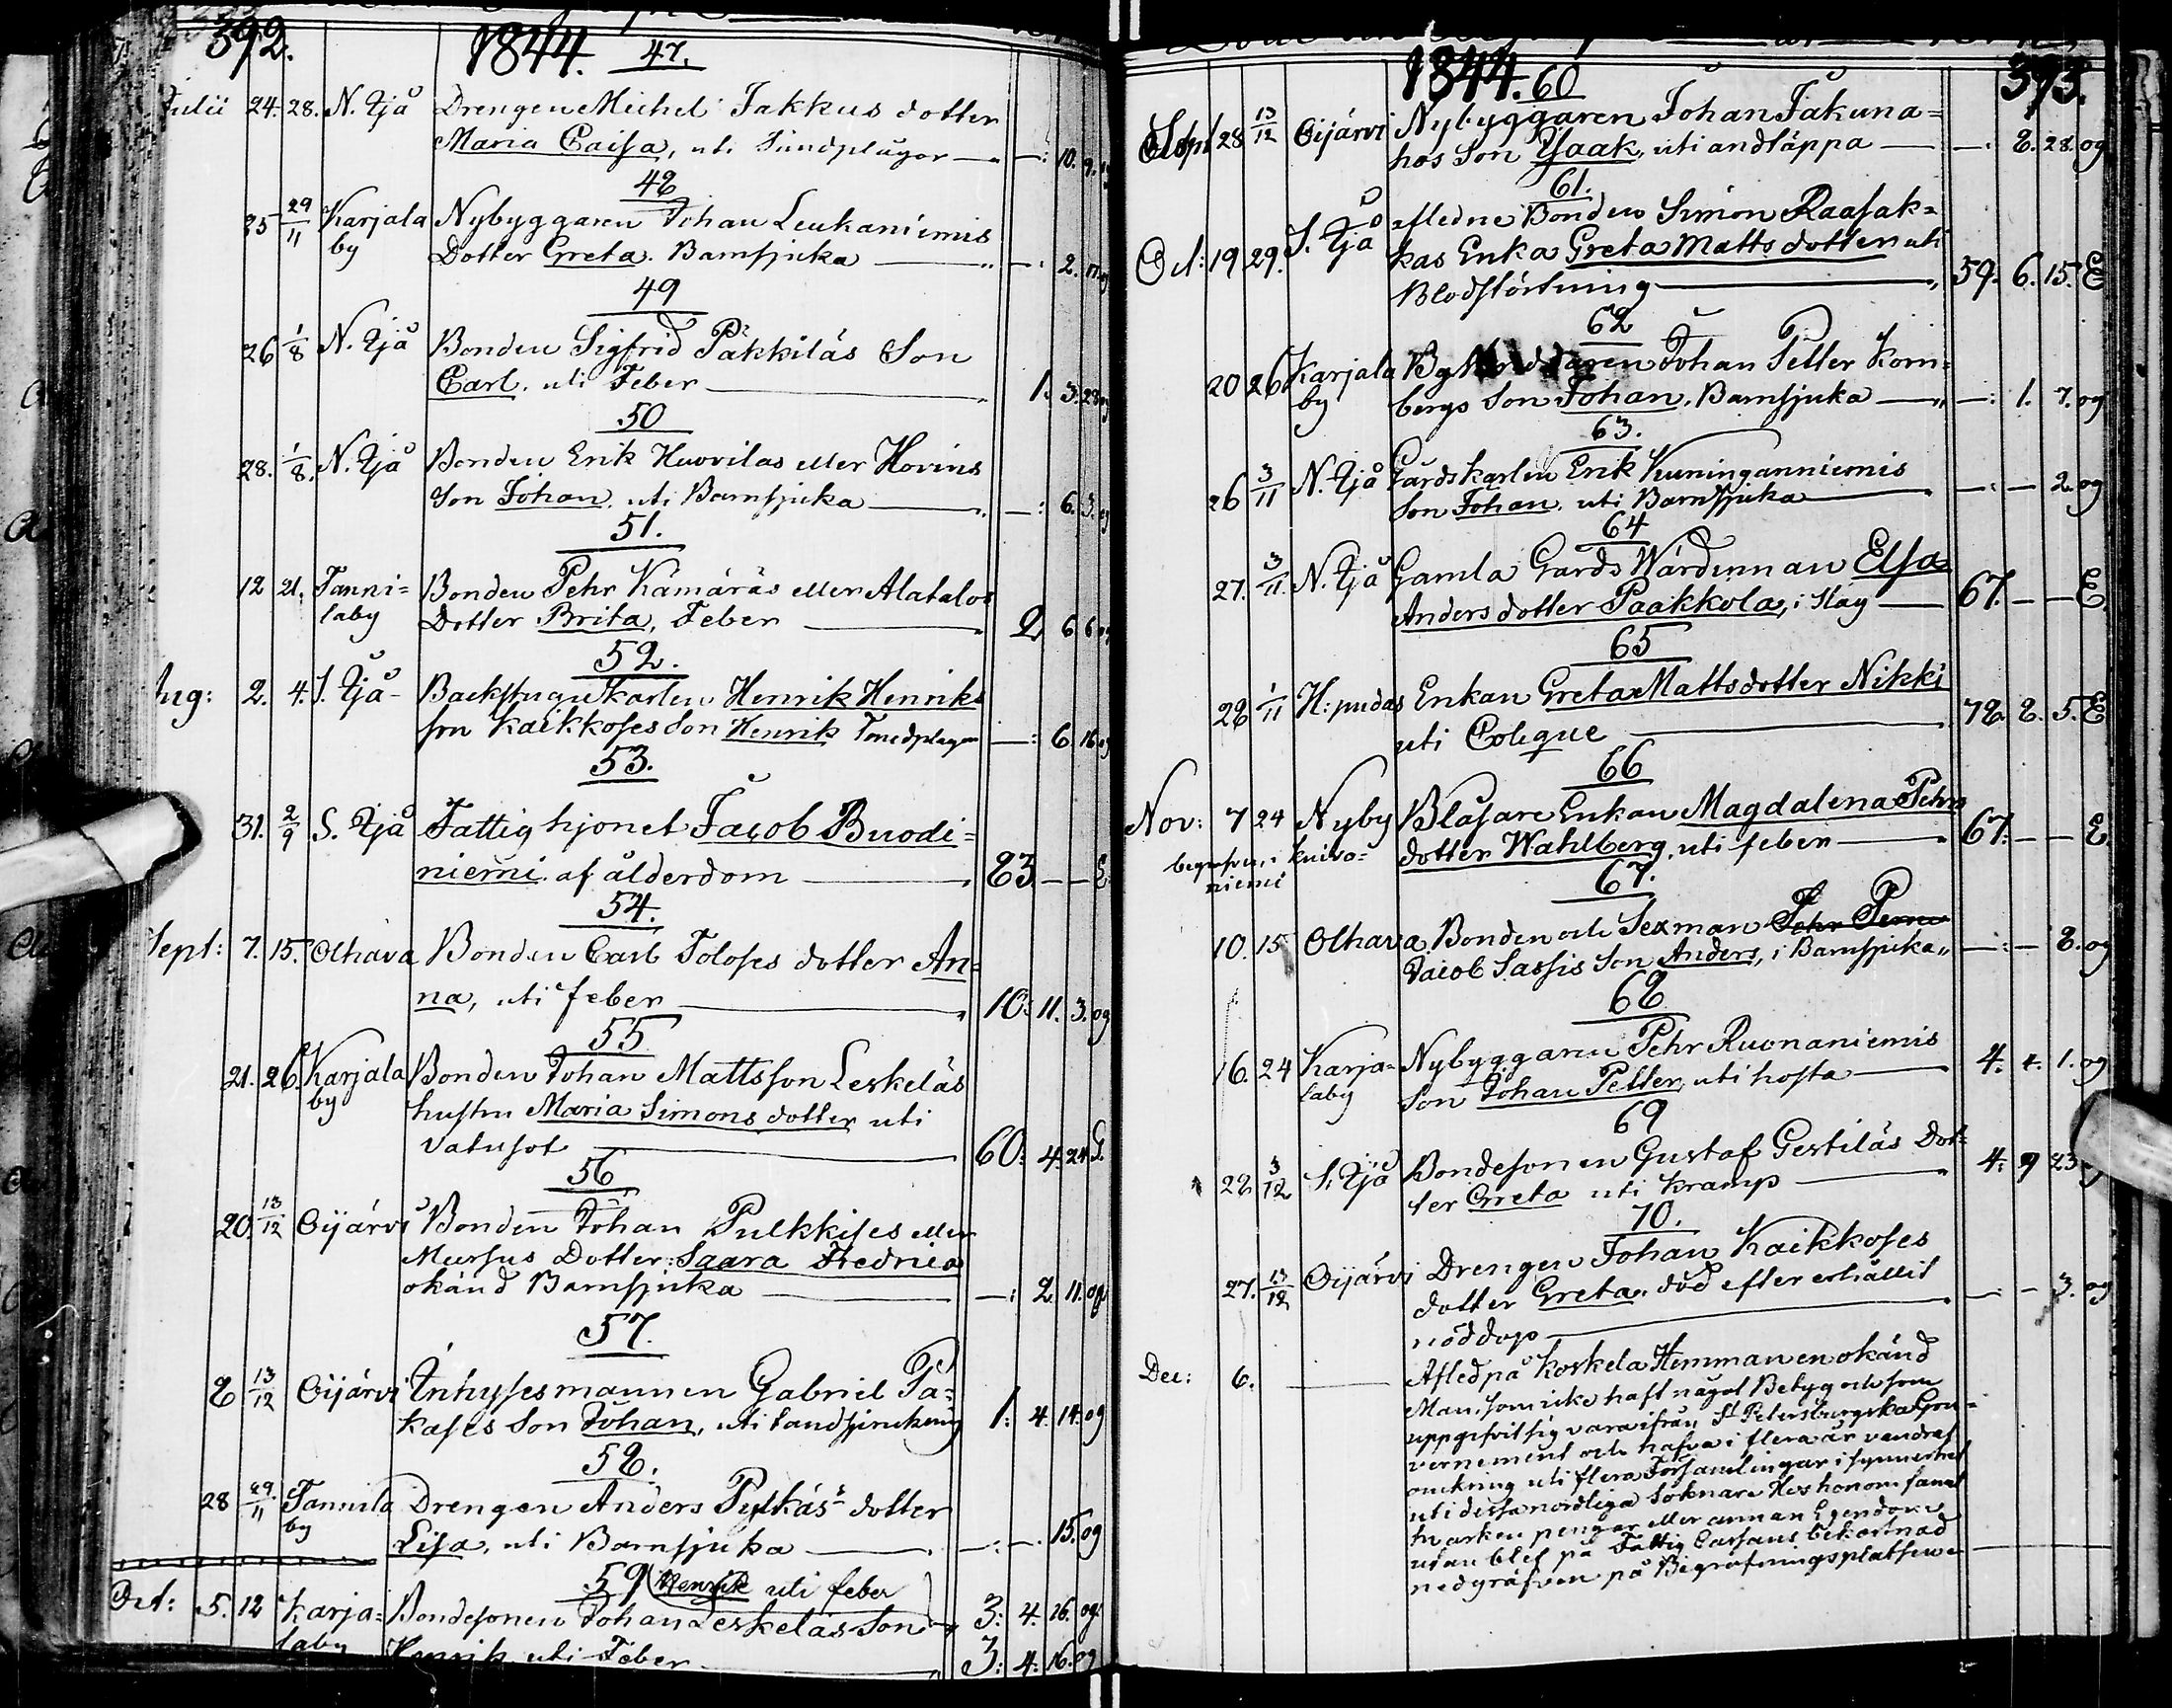 392.
1844.
47.
Julii 24. 28. N. Ijå Drengen Michel Jakkus dotter
Maria Caisa, uti Tundplågor —: 10. 9.
48
25 29/11 Karjala Nybyggaren Johan Leukaniemis
by Dotter Greta. Barnsjuka —: 2. 17. og
49
26 1/8 N. Ijå Bonden Sigfrid Päkkiläs Son
Carl. uti Feber 1. 3. 28 og
50
28. 1/8. N. Ijå Bonden Erik Huovilas eller Hovins
Son Johan. uti Barnsjuka —: 6. 3. og
51.
12 21. Tanni= Bonden Pehr Kämäräs eller Alatalos
laby Dotter Brita, Feber 2, 6. 6 og
52.
Aug: 2. 4. S. Ijå Backstugukarlen Henrik Henriks
son Kaikkoses Son Henrik —: 6. 16. og
53.
31. 2/9 S. Ijå Fattighjonet Jacob Buodi=
niemi. af ålderdom 83 — — E
54.
Sept: 7. 15. Olhava Bonden Carl Toloses dotter An=
na, uti feber 10: 11. 3. og
55
21. 26. Karjala Bonden Johan Mattsson Leskeläs
by hustru Maria Simons dotter uti
Vatusot 60: 4. 24 G.
56
20. 13/12 Oijärvi Bonden Johan Pulkkises eller
Mursus Dotter: Saara Fredrica
okänd Barnsjuka —: 2. 11. og
57.
8 13/12 Oijärvi Inhysesmannen Gabriel Pa=
kases Son Johan, uti tandspruckning 1: 4. 14. og
58.
28 29/11 Tannila Drengen Anders Pytkäs dotter
by Lisa, uti Barnsjuka —: —. 15. og
59 (Henrik uti feber
Oct: 5. 12 Karja= Bondesonen Johan Leskeläs Son 3: 4. 16. og
laby Henrik uti Feber 3: 4. 16. og
1844.
393.
60
Sept 28 13/12 Oijärvi Nybyggaren Johan Jakuna=
hos Son Ysaak, uti andtäppa —: 8. 28. og
61.
afledne Bonden Simon Raasak=
Oct: 19 29. S. Ijå kas Enka Greta Matts dotter uti
Blodstörtning 59. 6. 15. E
62
20 26. Karjala Johan Petter Korn=
by bergs Son Johan. Barnsjuka —: 1. 7. og
63.
26 3/11 N. Ijå Gårdskarlen Erik Kuninganniemis
Son Johan. uti Barnsjuka —: — 2. og
64
27. 3/11. N. Ijå Gamla Gårds Wärdinnan Elsa
Anders dotter Paakkola, i Slag 67. — — E.
65
28 1/11 H:pudas Enkan Greta Mattsdotter Nikki
uti Colique 78. 8. 5. E
66
Nov: 7 24 Nyby Blåsare Enkan Magdalena Pehrs
begrafven i Kuiva= dotter Wahlberg, uti feber 67: — — E
niemi
67.
10. 15 Olhava Bonden och Sexman Pehr Pernu
Jacob Sassis Son Anders, i Barnsjuka —: — 8. og
68
16. 24 Karja= Nybyggaren Pehr Ruonaniemis
laby Son Johan Petter, uti hosta 4. 4. 1. og
69
22 3/12 S. Ijå Bondesonen Gustaf Gestiläs Dot=
ter Greta uti kramp 4: 9 23 og
70.
27. 13/12 Oijärvi Drengen Johan Kaikkoses
dotter Greta. död efter erhållit
nöddop — — 3. og
Dec: 6. — Afled på Koskela Hemman en okänd
Man, som icke haft något Betyg och som
uppgifvit sig vara ifrån St Petersburgska Gou=
vernement och hafva i flera år vandrat
omkring uti flera Församlingar i synnerhet
uti dessa nordliga Soknar. Hos honom fanns
hvarken pengar eller annan Egendom
utan blef på Fattig Cassans bekostnad
nedgräfven på Begrafningsplatsen